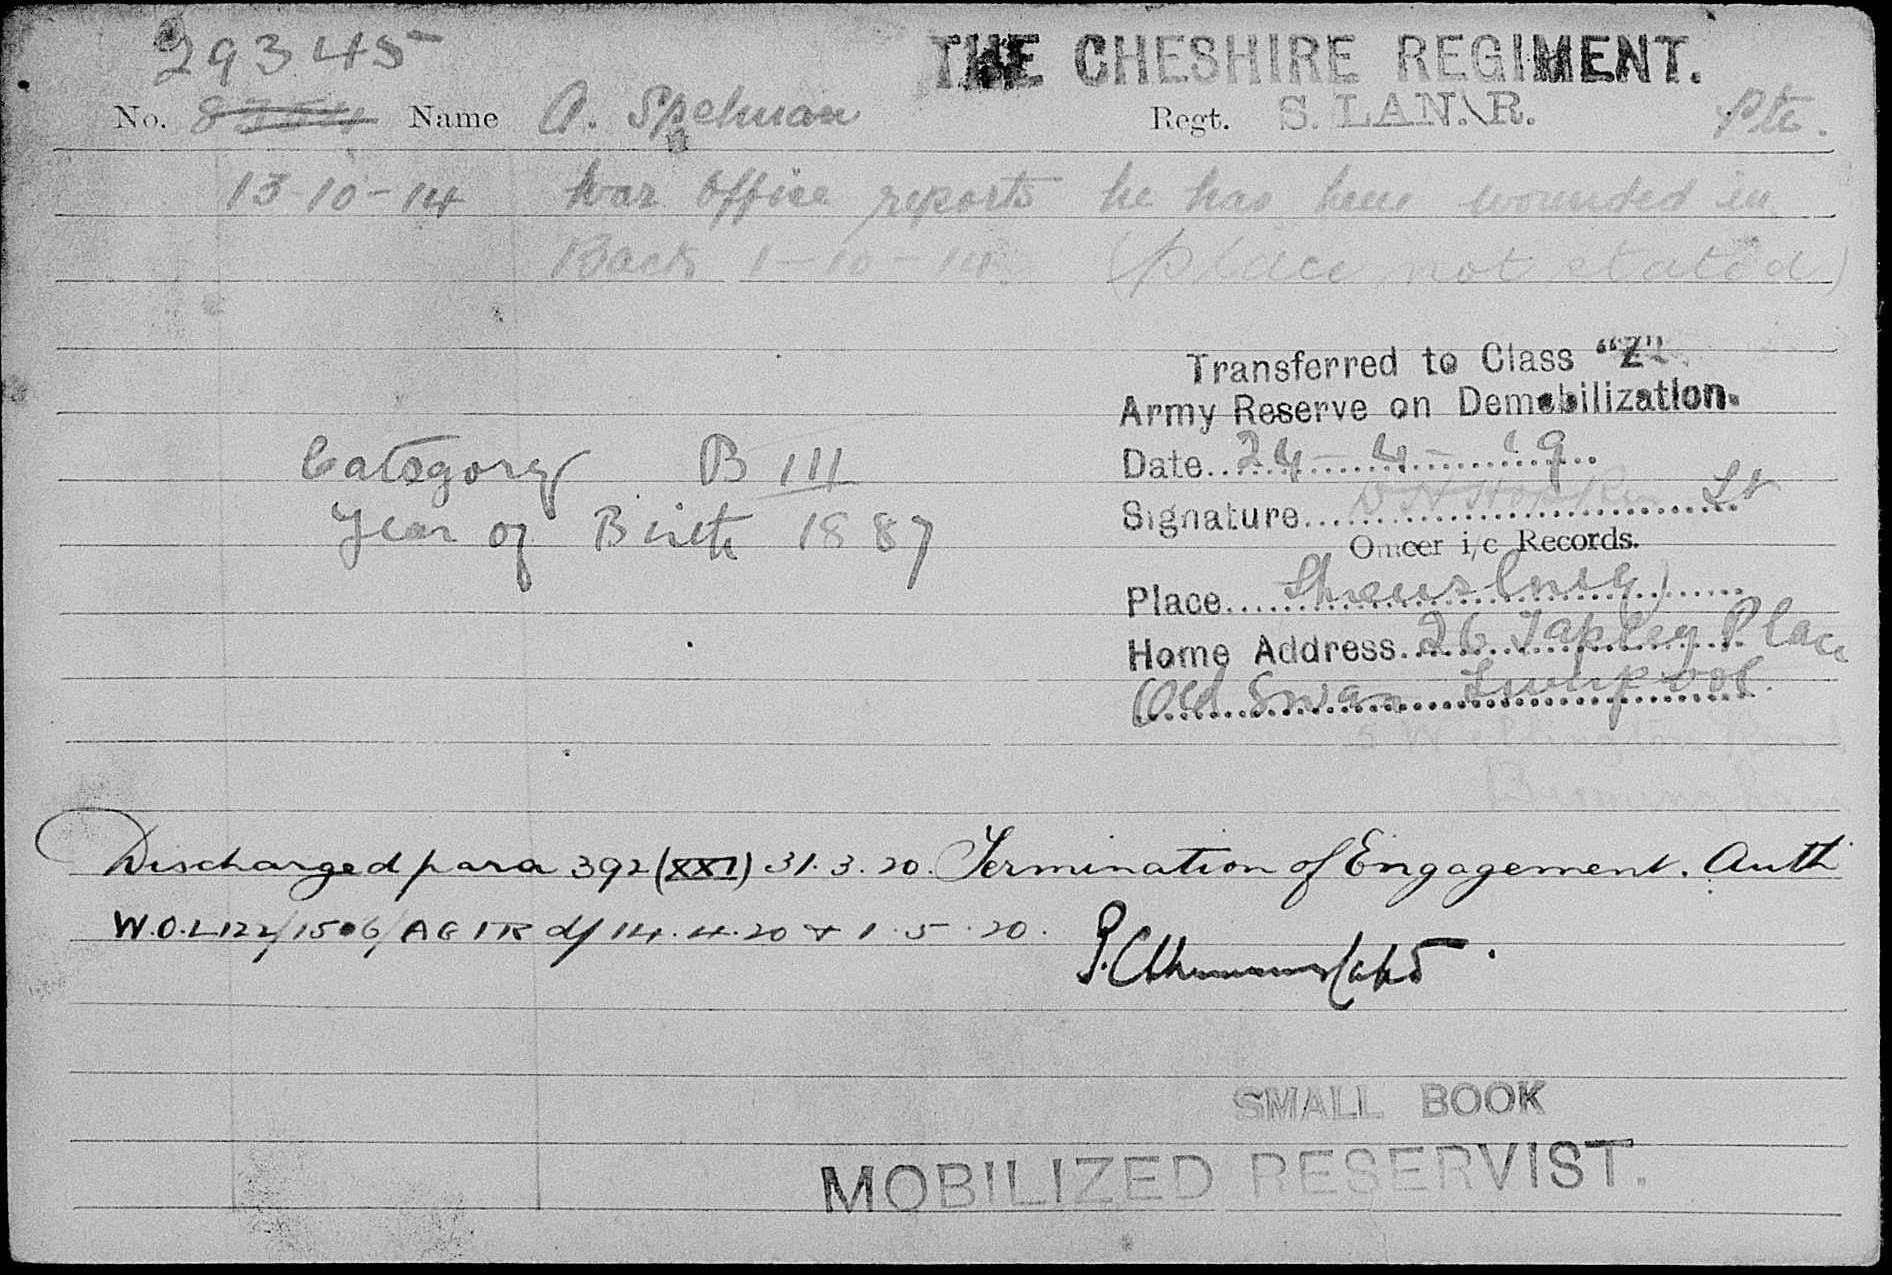 29345
THE CHESHIRE REGIMENT.
No. 8354 Name A. Spelman Regt. S. LAN. R. Pte.
13-10-14 War Office reports he has been wounded in
Back 1-10-14 (place not stated)
Transferred to Class "Z"
Army Reserve on Demobilization.
Date 24-4-19
Category B III
Signature Lt
Year of Birth 1887
Officer i/c Records.
Place Shrewsbury
Home Address 26 Tapley Place
Old Swan Liverpool.
Discharged para 392 (XXI) 31.3.20. Termination of Engagement. Auth
W.O.L 122/1506/AG1R d/14.4.20 & 1.5.20.
Capt.
SMALL BOOK
MOBILIZED RESERVIST.